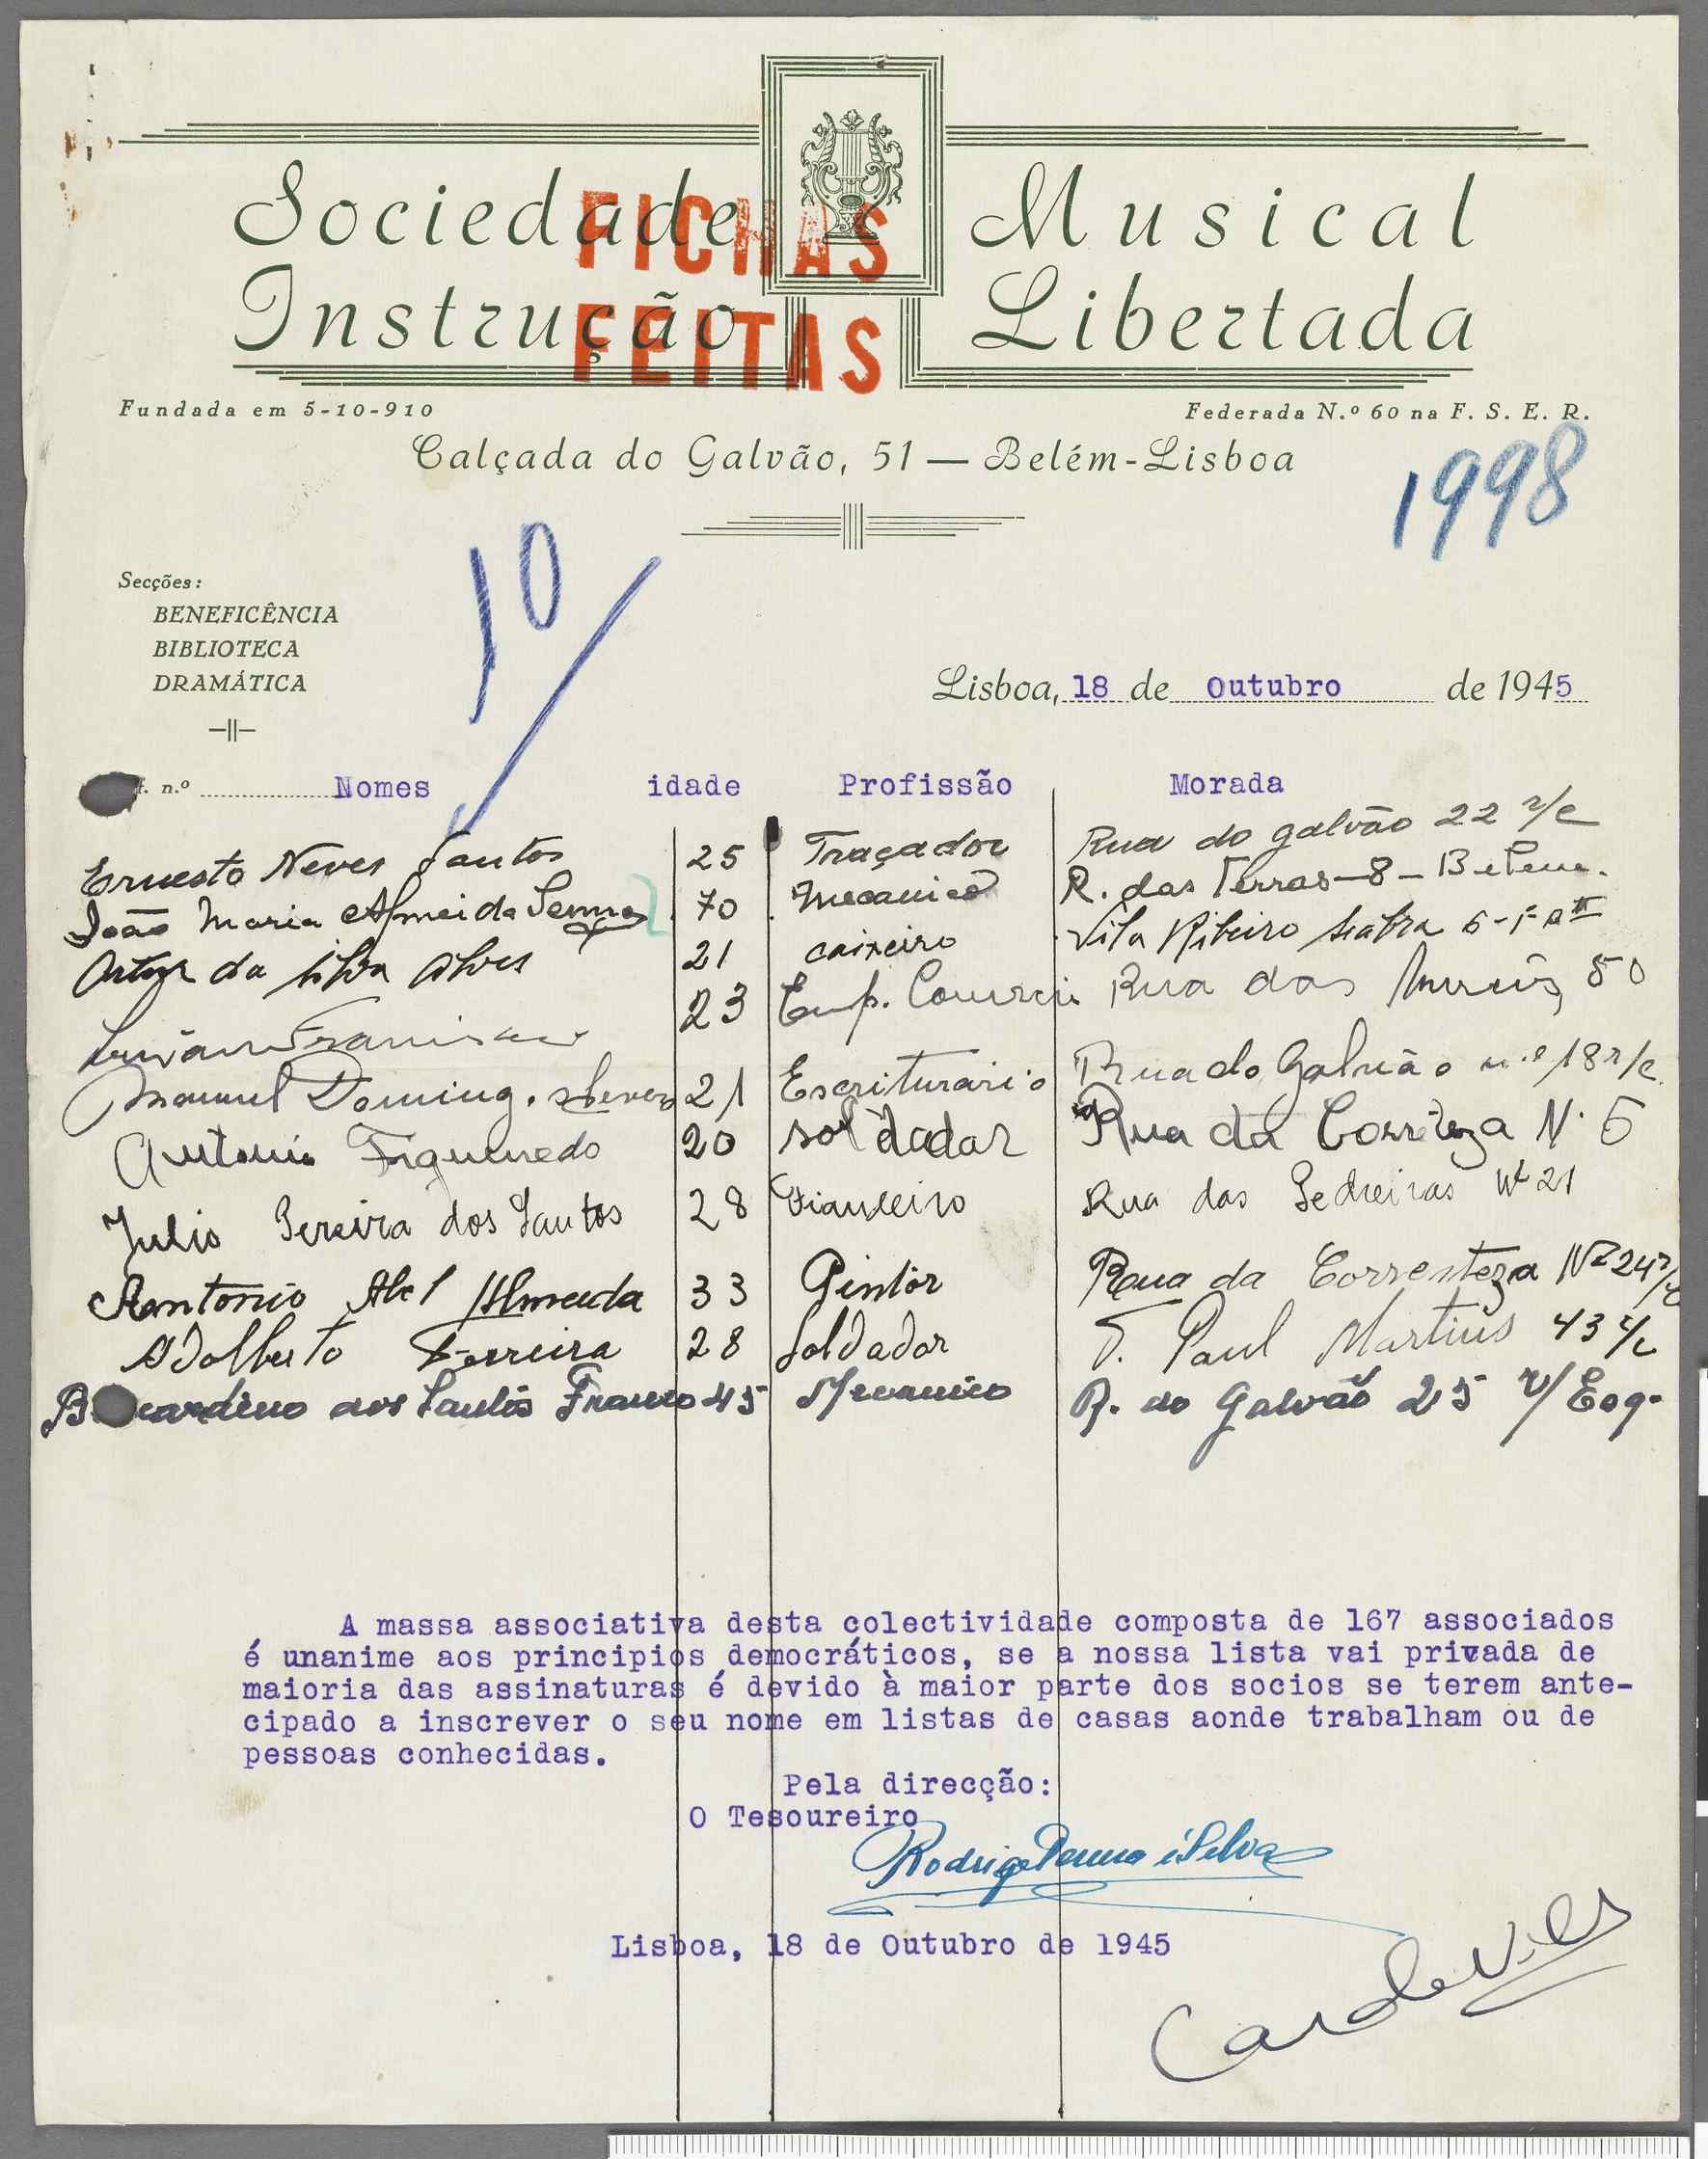 Sociedade Musical
Instrução Libertada
FICHAS
FEITAS
Fundada em 5-10-910
Federada N.º 60 na F. S. E. R.
Calçada do Galvão, 51 — Belém-Lisboa
1998
10
Secções:
BENEFICÊNCIA
BIBLIOTECA
DRAMÁTICA
Lisboa, 18 de Outubro de 1945
n.º Nomes idade Profissão Morada
Ernesto Neves Santos 25 Traçador Rua do galvão 22 r/c
João Maria Almeida 70 Mecanico R. das Terras-8-Belem.
Artur da Silva Alves 21 caixeiro Vila Ribeiro Seabra
Francisco 23 Emp. Rua das 50
Manuel Doming. 21 Escriturario Rua do Galvão n.º 18 r/c.
Antonio Figueiredo 20 soldador Rua da Correteza N. 5
Julio Pereira dos Santos 28 Rua das Pedreiras Nº 21
Antonio Abel Almeida 33 Pintôr Rua da Correnteza Nº 24 r/c
Adolberto Ferreira 28 Soldador T. Paul Martins 43 r/c
dos Santos Franco 45 Mecanico R. do Galvão 25 r/ Esq.
A massa associativa desta colectividade composta de 167 associados
é unanime aos principios democráticos, se a nossa lista vai privada de
maioria das assinaturas é devido à maior parte dos socios se terem ante-
cipado a inscrever o seu nome em listas de casas aonde trabalham ou de
pessoas conhecidas.
Pela direcção:
O Tesoureiro
Rodrigo e Silva
Lisboa, 18 de Outubro de 1945